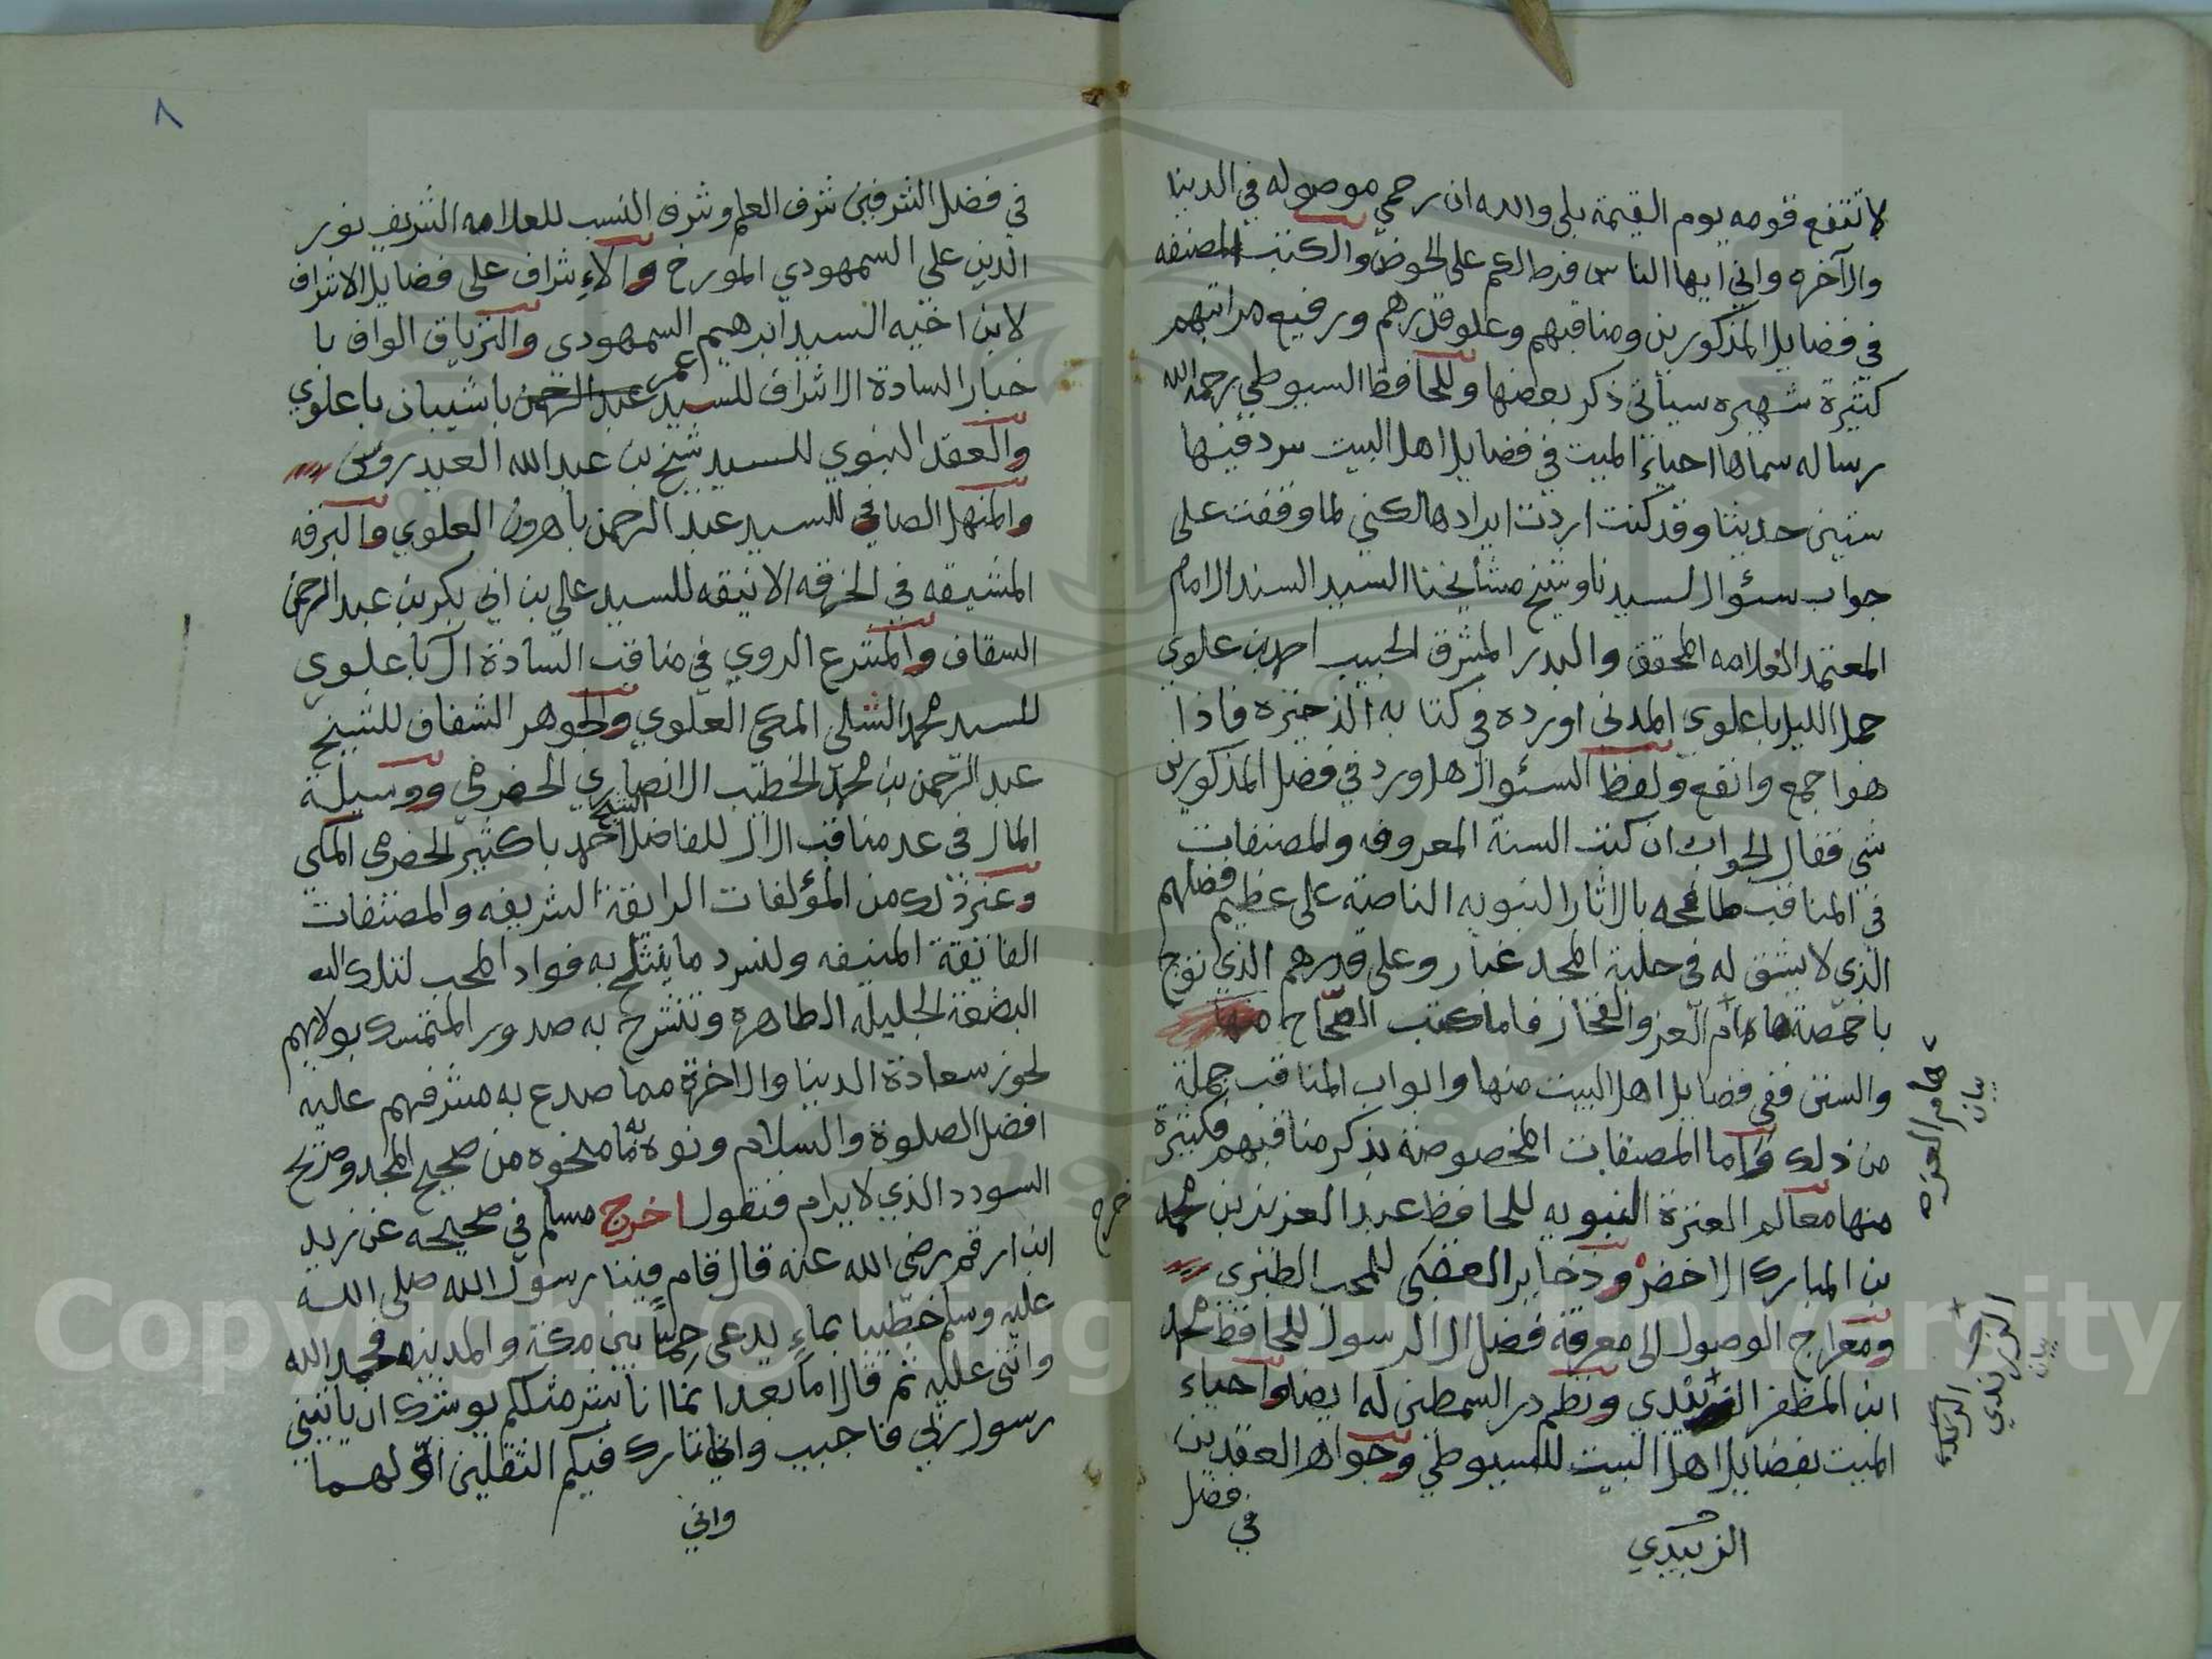 لا تنفع قومه يوم القيمة بلى والله ان رحمي موصوله في الدنيا
والآخره واني ايها الناس فرط لكم على الحوض والكتب المصنفه
في فضايل المذكورين ومناقبهم وعلو قدرهم ورفيع مراتبهم
كثيرة شهيره سيأتي ذكر بعضها وللحافظ السيوطي رحمه الله
رساله سماها احياء الميت في فضايل اهل البيت سرد فيها
ستين حديثا وقد كنت اردت ايرادها لكني لما وقفت على
جواب سئوال لسيدنا وشيخ مشايخنا السيد السند الامام
المعتمد العلامه المحقق والبدر المشرق الحبيب احمد بن علوي
جمل الليل باعلوي المدني اورده في كتابه الذخيره فاذا
هو اجمع وانفع ولفظ السئوال هل ورد في فضل المذكورين
شي فقال الجواب ان كتب السنة المعروفه والمصنفات
في المناقب طافحه بالاثار النبويه الناصة على عظيم فضلهم
الذي لا يشق له في حلبة المجد غبار وعلى قدرهم الذي توج
باخمصة هام العز والفخار فاما كتب الصحاح منها
والسنن ففي فضايل اهل البيت منها وابواب المناقب جملة
من ذلك واما المصنفات المخصوصة بذكر مناقبهم فكثيرة
منها معالم العترة النبويه للحافظ عبد العزيز بن محمد
بن المبارك الاخضر وذخاير العقبى للمحب الطبري
ومعراج الوصول الى معرفة فضل ال الرسول للحافظ محمد
ابن المظفر الزرندي ونظم درر السمطين له ايضا واحياء
الميت بفضايل اهل البيت للسيوطي وجواهر العقدين
في فضل
الزبيدي
هام العزه
بيان
الزرندي
بيان
٨
في فضل الشرفين شرف العلم وشرف النسب للعلامه الشريف نور
الدين علي السمهودي المورخ والاشراف على فضايل الاشراف
لابن اخيه السيد ابرهيم السمهودي والترياق الواف با
خبار السادة الاشراف للسيد عبد الرحمن عمر باشيبان باعلوي
والعقد النبوي للسيد شيخ بن عبد الله العيدروس
والمنهل الصافي للسيد عبد الرحمن باهرون العلوي والبرقه
المشيقه في الخرقه الانيقه للسيد علي بن ابي بكر بن عبد الرحمن
السقاف والمشرع الروي في مناقب السادة ال باعلوي
للسيد محمد الشلي المكي العلوي والجوهر الشفاف للشيخ
عبد الرحمن بن محمد الخطيب الانصاري الحضرمي ووسيلة
المال في عد مناقب الال للفاضل الشيخ احمد باكثير الحضرمي المكي
وغير ذلك من المؤلفات الرايقة الشريفه والمصنفات
الفايقة المنيفه ولنسرد ما يثلج به فواد المحب لتلك
البضعة الجليله الطاهره وتنشرح به صدور المتمسك بولايهم
لحوز سعادة الدنيا والاخرة مما صدع به مشرفهم عليه
افضل الصلوة والسلام ونوه به مما منحوه من صحيح المجد وصريح
السودد الذي لا يرام فنقول اخرج مسلم في صحيحه عن زيد
ابن ارقم رضي الله عنه قال قام فينا رسول الله صلى الله
عليه وسلم خطيبا بماءٍ يدعى خماً بين مكة والمدينه فحمد الله
واثنى عليه ثم قال اما بعد انما انا بشر مثلكم يوشك ان ياتيني
رسول ربي فاجيب واني تارك فيكم الثقلين اولهما
واني
خرج